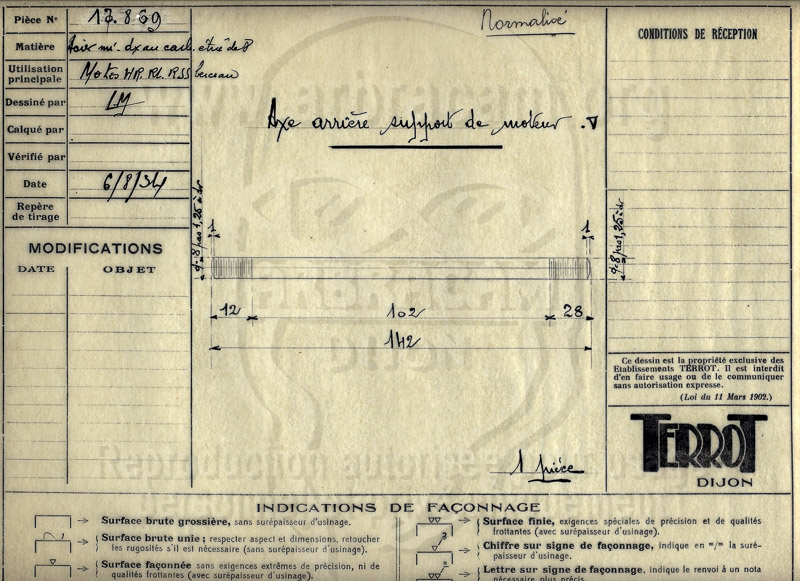 Pièce N° 17.869
Normalisé
Matière Acier mi-dx au carb. étiré de 8
Utilisation principale Motos HR. RL. RSS berceau
Dessiné par LM
Calqué par
Vérifié par
Date 6/8/34
Repère de tirage
MODIFICATIONS
DATE OBJET
Axe arrière support de moteur .∇
1 1
φ-8 pas 1,25 à dr φ-8 pas 1,25 à dr
12 102 28
142
1 pièce
CONDITIONS DE RÉCEPTION
Ce dessin est la propriété exclusive des
Etablissements TERROT. Il est interdit
d'en faire usage ou de le communiquer
sans autorisation expresse.
(Loi du 11 Mars 1902.)
TERROT
DIJON
INDICATIONS DE FAÇONNAGE
Surface brute grossière, sans surépaisseur d'usinage.
Surface brute unie ; respecter aspect et dimensions, retoucher
les rugosités s'il est nécessaire (sans surépaisseur d'usinage).
Surface façonnée sans exigences extrêmes de précision, ni de
qualités frottantes (avec surépaisseur d'usinage).
Surface finie, exigences spéciales de précision et de qualités
frottantes (avec surépaisseur d'usinage).
Chiffre sur signe de façonnage, indique en m/m la suré-
paisseur d'usinage.
Lettre sur signe de façonnage, indique le renvoi à un nota
nécessaire plus précis.